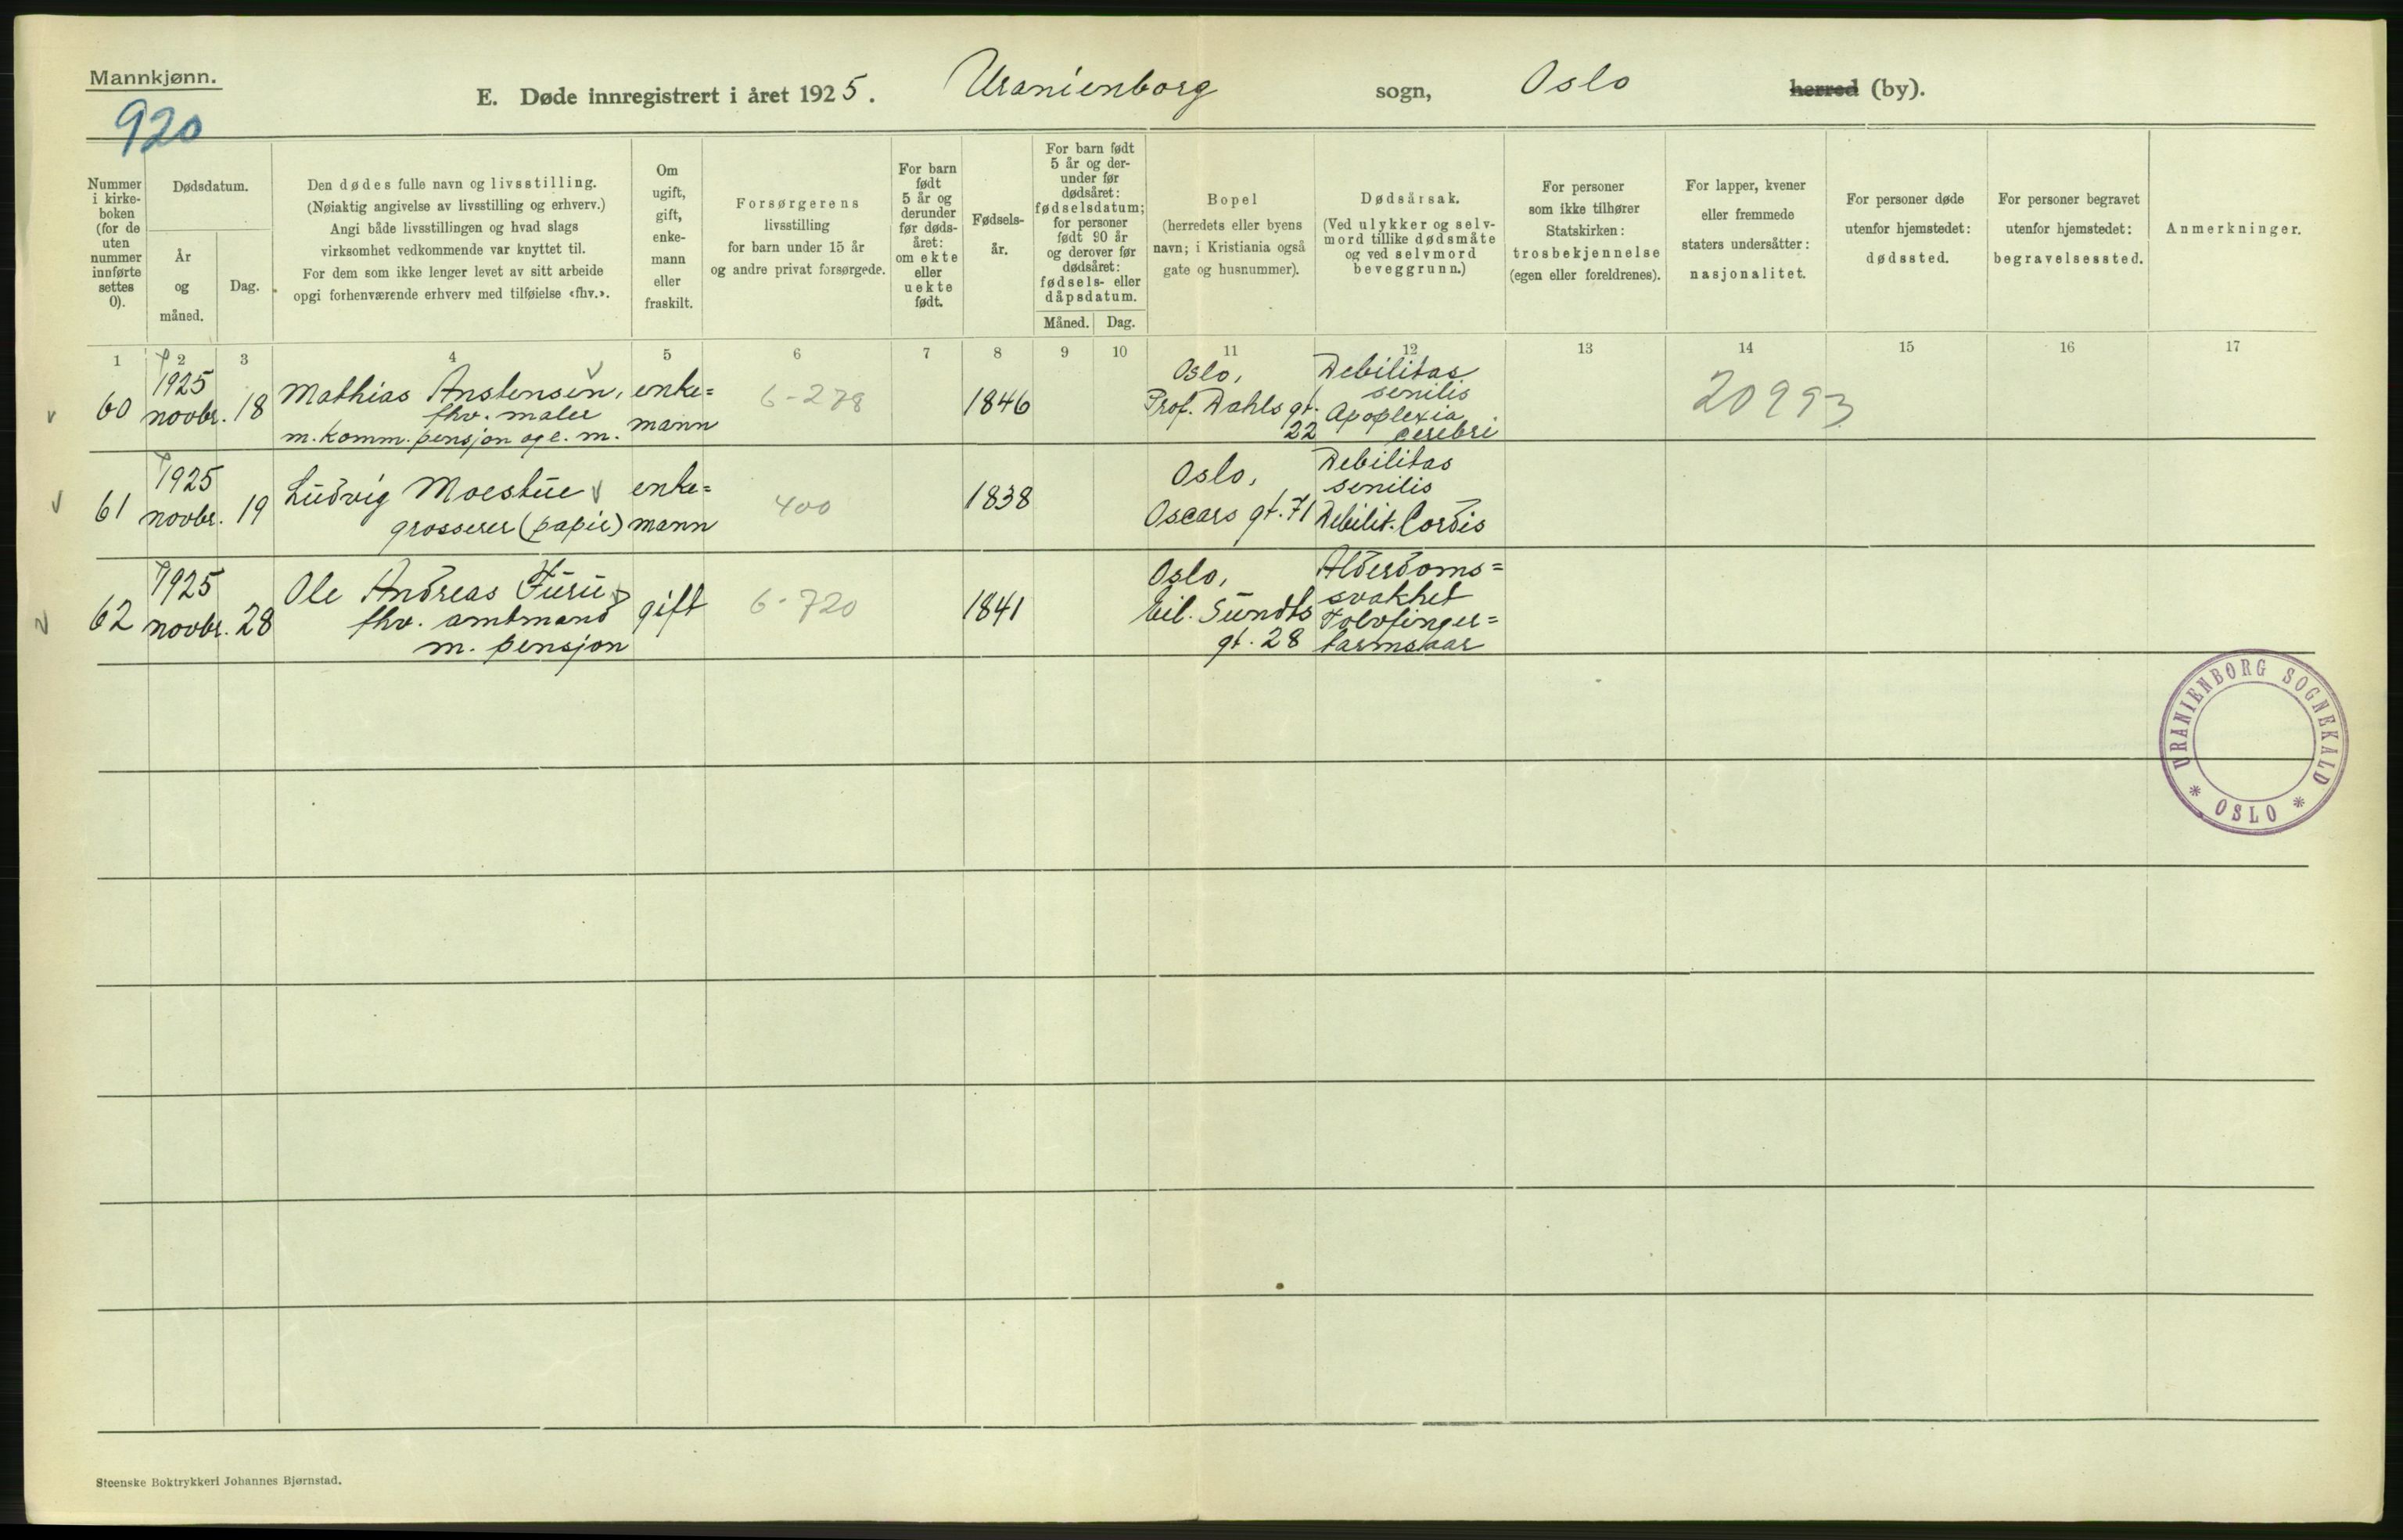 Mannkjønn.
920
E. Døde innregistrert i året 1925. Uranienborg sogn, Oslo herred (by).
Nummer i kirke-boken (for de uten nummer innførte settes 0).
Dødsdatum.
År og måned.
Dag.
Den dødes fulle navn og livsstilling.
(Nøiaktig angivelse av livsstilling og erhverv.)
Angi både livsstillingen og hvad slags
virksomhet vedkommende var knyttet til.
For dem som ikke lenger levet av sitt arbeide
opgi forhenværende erhverv med tilføielse «fhv.».
Om ugift, gift, enke-mann eller fraskilt.
Forsørgerens
livsstilling
for barn under 15 år
og andre privat forsørgede.
For barn født 5 år og derunder før døds-året: om ekte eller uekte født.
Fødsels-år.
For barn født 5 år og der-under før dødsåret: fødselsdatum; for personer født 90 år og derover før dødsåret: fødsels- eller dåpsdatum.
Måned. Dag.
Bopel
(herredets eller byens
navn; i Kristiania også
gate og husnummer).
Dødsårsak.
(Ved ulykker og selv-
mord tillike dødsmåte
og ved selvmord
beveggrunn.)
For personer
som ikke tilhører
Statskirken:
trosbekjennelse
(egen eller foreldrenes).
For lapper, kvener
eller fremmede
staters undersåtter:
nasjonalitet.
For personer døde
utenfor hjemstedet:
dødssted.
For personer begravet
utenfor hjemstedet:
begravelsessted.
Anmerkninger.
1 2 3 4 5 6 7 8 9 10 11 12 13 14 15 16 17
60 1925 novbr. 18
Mathias Anstensen,
fhv. maler
m. komm. pensjon og e. m.
enke=
mann
6-278
1846
Oslo,
Prof. Dahls gt.
22
Debilitas
senilis
Apoplexia
cerebri
20993
61 1925 novbr. 19
Ludvig Moestue
grosserer (papir)
enke=
mann
400
1838
Oslo,
Oscars gt. 71
Debilitas
senilis
Debilit. Cordis
62 1925 novbr. 28
Ole Andreas Furu
fhv. amtmand
m. pensjon
gift
6-720
1841
Oslo,
Eil. Sundts
gt. 28
Alderdoms=
svakhet
Tolvfinger=
tarmsaar
URANIENBORG SOGNEKALD
* OSLO *
Steenske Boktrykkeri Johannes Bjørnstad.